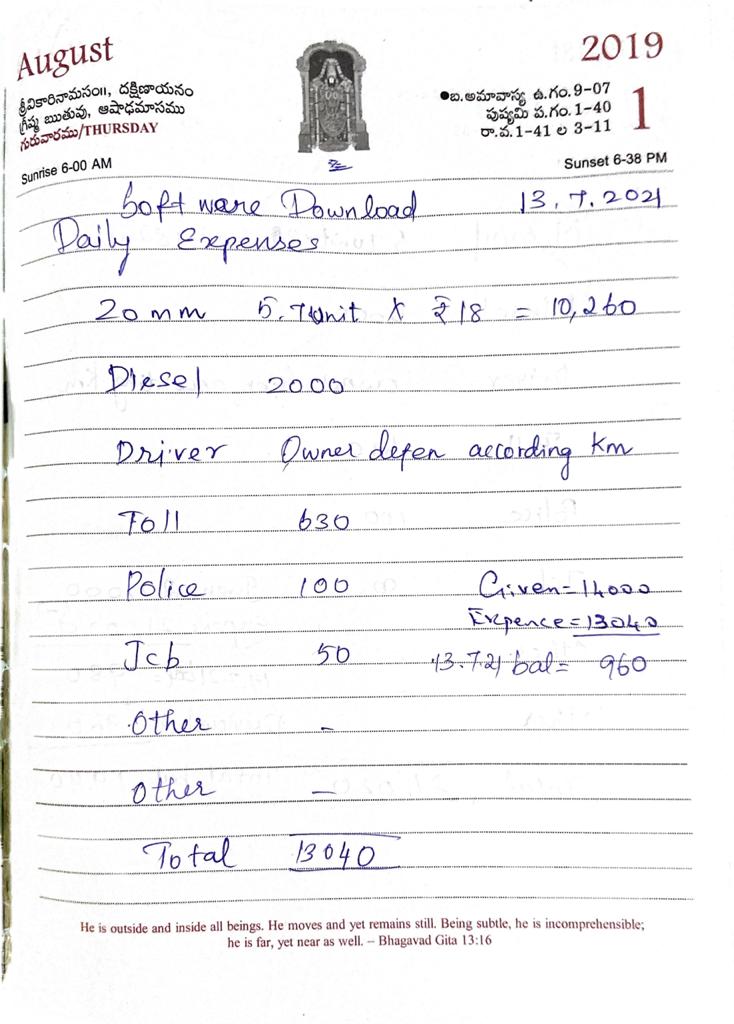 August
2019
శ్రీవికారినామసం॥, దక్షిణాయనం
గ్రీష్మ ఋతువు, ఆషాఢమాసము
గురువారము/THURSDAY
●బ.అమావాస్య ఉ.గం.9-07
పుష్యమి ప.గం.1-40
రా.వ.1-41 ల 3-11
1
Sunrise 6-00 AM
Sunset 6-38 PM
Software Download 13.7.2021
Daily Expenses
20 mm 5.7 Unit X ₹ 18 = 10,260
Diesel 2000
Driver Owner depen according Km
Toll 630
Police 100 Given = 14000
Expence = 13040
Jcb 50 13.7.21 bal = 960
Other -
Other -
Total 13040
He is outside and inside all beings. He moves and yet remains still. Being subtle, he is incomprehensible;
he is far, yet near as well. – Bhagavad Gita 13:16